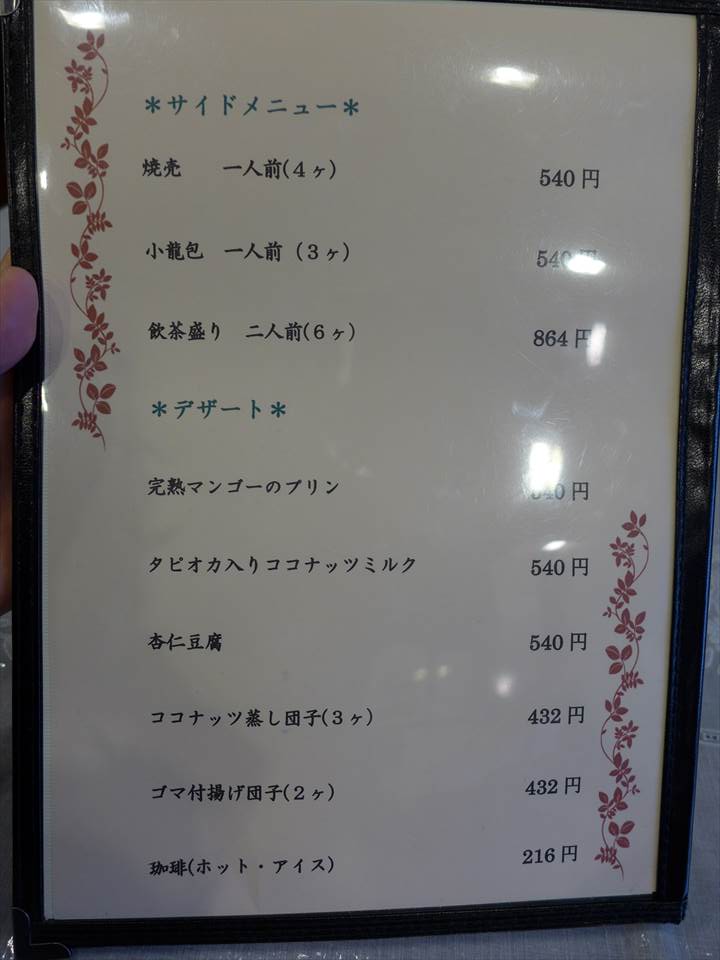 ＊サイドメニュー＊
焼売　一人前(４ヶ)　540 円
小龍包　一人前（３ヶ）　540 円
飲茶盛り　二人前(６ヶ)　864 円
＊デザート＊
完熟マンゴーのプリン　540 円
タピオカ入りココナッツミルク　540 円
杏仁豆腐　540 円
ココナッツ蒸し団子(３ヶ)　432 円
ゴマ付揚げ団子(２ヶ)　432 円
珈琲(ホット・アイス)　216 円